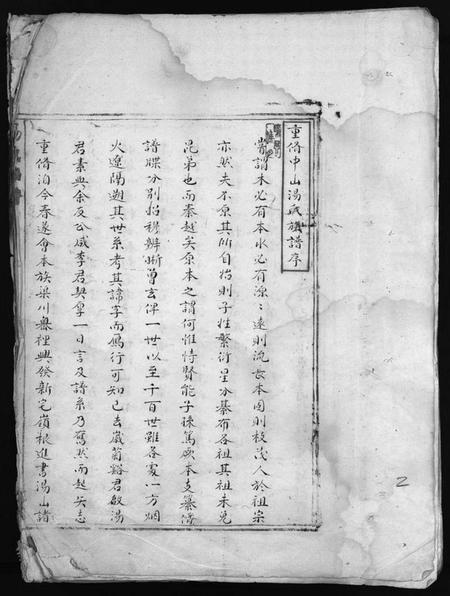 重脩中山湯氏族譜序
嘗謂木必有本水必有源源遠則流長本固則枝茂人於祖宗
亦然夫不原其所自始則子姓繁衍星分棊布各祖其祖未免
兄弟也而秦越矣原本之謂何惟恃賢能子孫篤厥本支纂脩
譜牒分別昭穆辨晰曾玄俾一世以至千百世雖各處一方烟
火遼隔遡其世系考其諱字而駕行可知已去歲蘭谿君敏湯
君素與余友公咸李君契厚一日言及譜系乃奮然而起矢志
重脩洎今春遂會本族梁川彝裡興發新宅嶺根進馬湯山諸
2